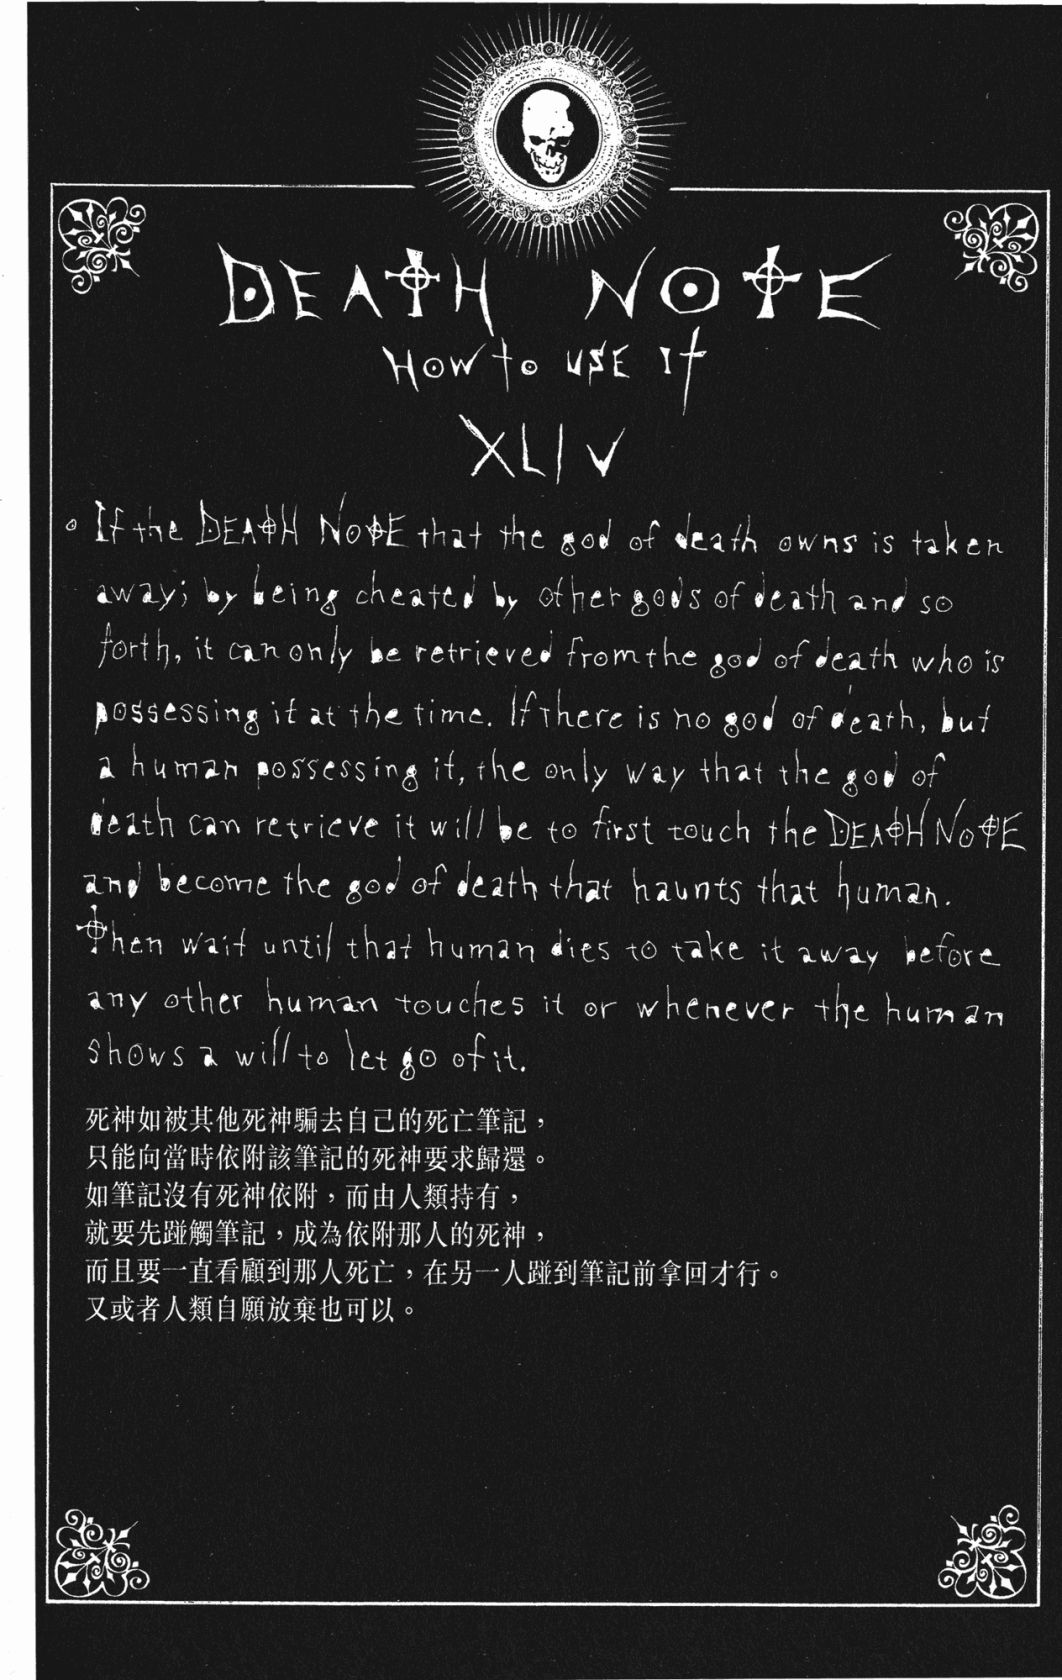 DEATH NOTE
HOW to USE It
XLIV
If the DEATH NOTE that the god of death owns is taken
away; by being cheated by other gods of death and so
forth, it can only be retrieved from the god of death who is
possessing it at the time. If there is no god of death, but
a human possessing it, the only way that the god of
death can retrieve it will be to first touch the DEATH NOTE
and become the god of death that haunts that human.
Then wait until that human dies to take it away before
any other human touches it or whenever the human
shows a will to let go of it.
死神如被其他死神騙去自己的死亡筆記，
只能向當時依附該筆記的死神要求歸還。
如筆記沒有死神依附，而由人類持有，
就要先踫觸筆記，成為依附那人的死神，
而且要一直看顧到那人死亡，在另一人踫到筆記前拿回才行。
又或者人類自願放棄也可以。